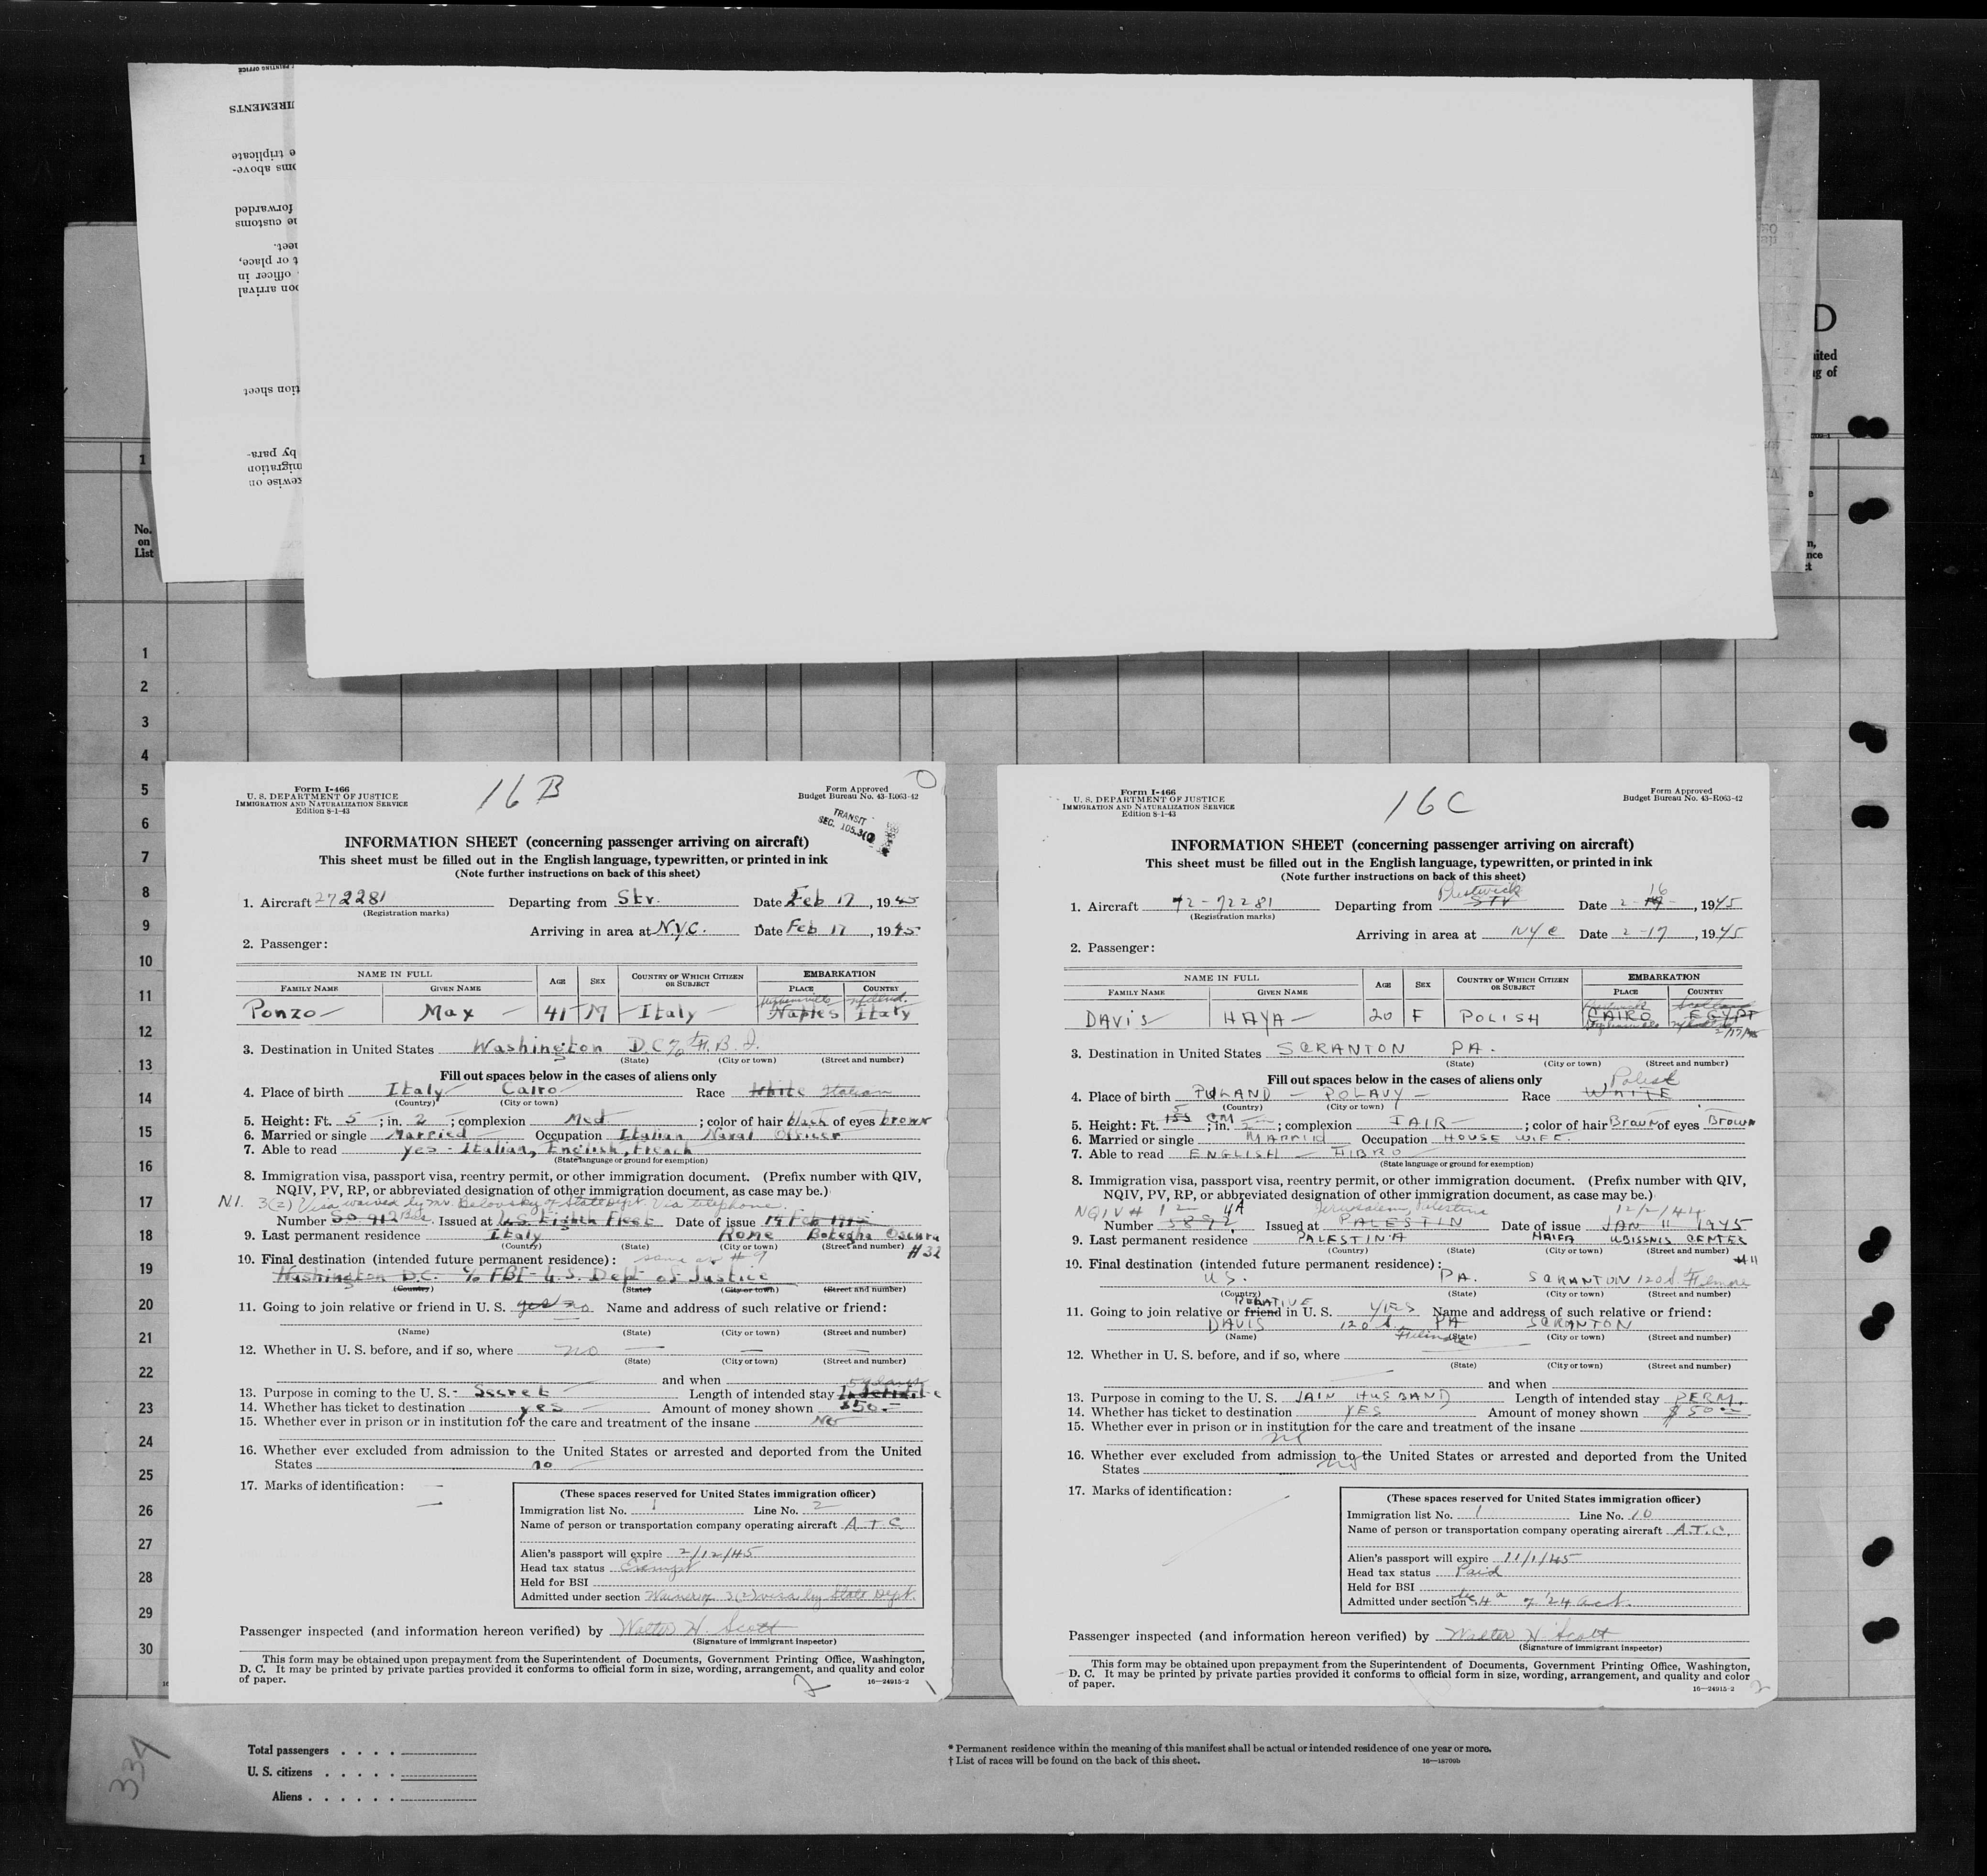 IREMENTS
e triplicate
oms above-
forwarded
he customs
heet.
t or place,
officer in
pon arrival
tion sheet
by para-
migration
kewise on
D
ited
ng of
No.
on
List
1
2
3
4
5
6
7
8
9
10
11
12
13
14
15
16
17
18
19
20
21
22
23
24
25
26
27
28
29
30
16 B
Form I-466
U. S. DEPARTMENT OF JUSTICE
IMMIGRATION AND NATURALIZATION SERVICE
Edition 8-1-43
Form Approved
Budget Bureau No. 43-R063-42
TRANSIT
SEC. 105.3
INFORMATION SHEET (concerning passenger arriving on aircraft)
This sheet must be filled out in the English language, typewritten, or printed in ink
(Note further instructions on back of this sheet)
1. Aircraft 272281 Departing from Stv. Date Feb 17, 1945
(Registration marks)
Arriving in area at N.Y.C. Date Feb 17, 1945
2. Passenger:
NAME IN FULL AGE SEX COUNTRY OF WHICH CITIZEN OR SUBJECT EMBARKATION
FAMILY NAME GIVEN NAME PLACE COUNTRY
Ponzo Max 41 M Italy Naples Italy
3. Destination in United States Washington D.C. % F.B.I.
(State) (City or town) (Street and number)
Fill out spaces below in the cases of aliens only
4. Place of birth Italy Cairo Race White Italian
(Country) (City or town)
5. Height: Ft. 5; in. 2; complexion Med; color of hair black of eyes brown
6. Married or single Married Occupation Italian Naval Officer
7. Able to read yes - Italian, English, French
(State language or ground for exemption)
8. Immigration visa, passport visa, reentry permit, or other immigration document. (Prefix number with QIV,
NQIV, PV, RP, or abbreviated designation of other immigration document, as case may be.)
N.I. 3(2) Visa waived by Mr. Belovsky of State Dept. Via telephone.
Number SO 912 Issued at U.S. Eighth Fleet Date of issue 14 Feb 1945
9. Last permanent residence Italy Rome Boteghe Oscure
(Country) (State) (City or town) (Street and number) #32
10. Final destination (intended future permanent residence): same as #9
Washington D.C. % FBI - U.S. Dept of Justice
(Country) (State) (City or town) (Street and number)
11. Going to join relative or friend in U. S. yes no Name and address of such relative or friend:
(Name) (State) (City or town) (Street and number)
12. Whether in U. S. before, and if so, where no
(State) (City or town) (Street and number)
and when
13. Purpose in coming to the U. S. - Secret Length of intended stay
14. Whether has ticket to destination yes Amount of money shown $50.-
15. Whether ever in prison or in institution for the care and treatment of the insane No
16. Whether ever excluded from admission to the United States or arrested and deported from the United
States no
17. Marks of identification:
(These spaces reserved for United States immigration officer)
Immigration list No. 1 Line No. 2
Name of person or transportation company operating aircraft A.T.C.
Alien's passport will expire 2/12/45
Head tax status Exempt
Held for BSI
Admitted under section Waiver of 3(2) visa by State Dept.
Passenger inspected (and information hereon verified) by Walter H. Scott
(Signature of immigrant inspector)
This form may be obtained upon prepayment from the Superintendent of Documents, Government Printing Office, Washington,
D. C. It may be printed by private parties provided it conforms to official form in size, wording, arrangement, and quality and color
of paper.
16—24915-2
2
16 C
Form I-466
U. S. DEPARTMENT OF JUSTICE
IMMIGRATION AND NATURALIZATION SERVICE
Edition 8-1-43
Form Approved
Budget Bureau No. 43-R063-42
INFORMATION SHEET (concerning passenger arriving on aircraft)
This sheet must be filled out in the English language, typewritten, or printed in ink
(Note further instructions on back of this sheet)
Prestwick 16
1. Aircraft 42-72281 Departing from STV Date 2-, 1945
(Registration marks)
Arriving in area at NYC Date 2-17, 1945
2. Passenger:
NAME IN FULL AGE SEX COUNTRY OF WHICH CITIZEN OR SUBJECT EMBARKATION
FAMILY NAME GIVEN NAME PLACE COUNTRY
Prestwick Scotland
DAVIS HAYA 20 F POLISH CAIRO EGYPT
2/17/45
3. Destination in United States SCRANTON PA.
(State) (City or town) (Street and number)
Fill out spaces below in the cases of aliens only
4. Place of birth POLAND - POLAVY - Race WHITE Polish
(Country) (City or town)
5. Height: Ft. 5; in. 5; complexion FAIR; color of hair Braun of eyes Brown
6. Married or single MARRIED Occupation HOUSE WIFE.
7. Able to read ENGLISH - HIBRO
(State language or ground for exemption)
8. Immigration visa, passport visa, reentry permit, or other immigration document. (Prefix number with QIV,
NQIV, PV, RP, or abbreviated designation of other immigration document, as case may be.)
NQIV # 12 4A Jerusalem, Palestine 12/2/44
Number 5892 Issued at PALESTIN Date of issue JAN 11 1945
9. Last permanent residence PALESTINA HAIFA UBISSNIS CENTER
(Country) (State) (City or town) (Street and number) #11
10. Final destination (intended future permanent residence):
U.S. PA. SCRANTON 120 S. Filmore
(Country) (State) (City or town) (Street and number)
RELATIVE
11. Going to join relative or friend in U. S. YES Name and address of such relative or friend:
DAVIS 120 S. Filmore PA SCRANTON
(Name) (State) (City or town) (Street and number)
12. Whether in U. S. before, and if so, where
(State) (City or town) (Street and number)
and when
13. Purpose in coming to the U. S. JAIN HUSBAND Length of intended stay PERM.
14. Whether has ticket to destination YES Amount of money shown $50
15. Whether ever in prison or in institution for the care and treatment of the insane
no
16. Whether ever excluded from admission to the United States or arrested and deported from the United
States no
17. Marks of identification:
(These spaces reserved for United States immigration officer)
Immigration list No. 1 Line No. 10
Name of person or transportation company operating aircraft A.T.C.
Alien's passport will expire 11/1/45
Head tax status Paid
Held for BSI
Admitted under section Sec 4a of 24 act.
Passenger inspected (and information hereon verified) by Walter H. Scott
(Signature of immigrant inspector)
This form may be obtained upon prepayment from the Superintendent of Documents, Government Printing Office, Washington,
D. C. It may be printed by private parties provided it conforms to official form in size, wording, arrangement, and quality and color
of paper.
16—24915-2
334
Total passengers . . . .
U. S. citizens . . . . .
Aliens . . . . . .
* Permanent residence within the meaning of this manifest shall be actual or intended residence of one year or more.
† List of races will be found on the back of this sheet.
16—18709b